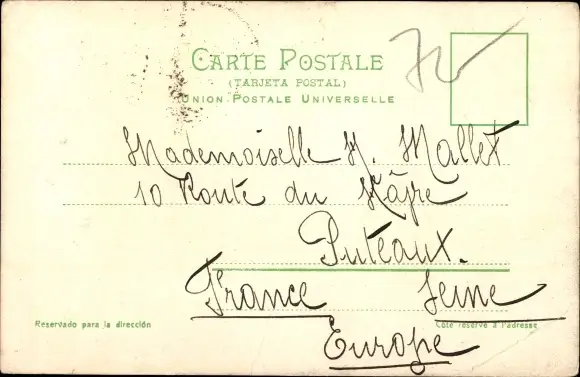 CARTE POSTALE
(TARJETA POSTAL)
UNION POSTALE UNIVERSELLE
72
Mademoiselle H. Mallet
10 Route du Hâvre
Puteaux.
France Seine
Europe
Reservado para la dirección
Côté réservé à l'adresse